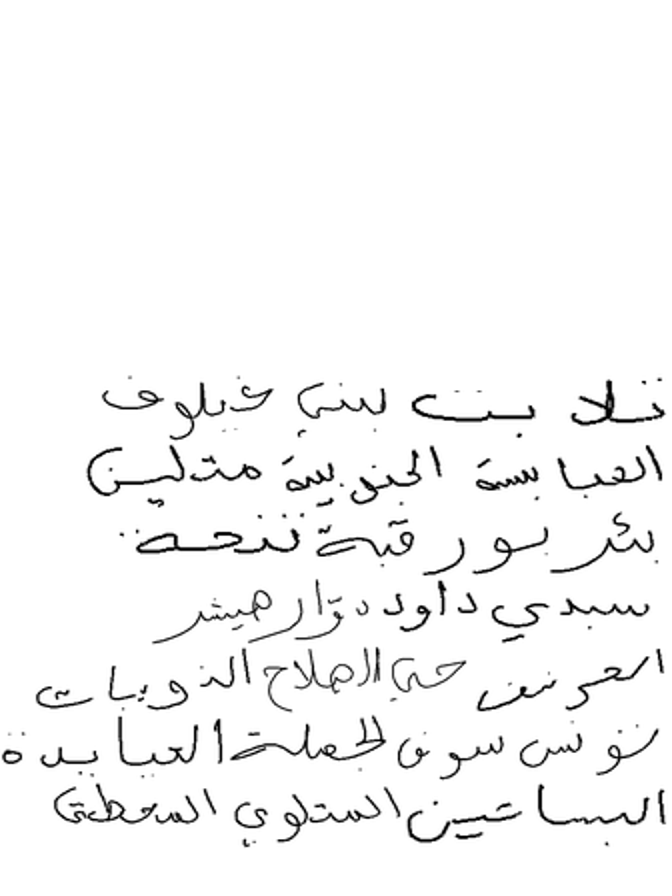 ثلابت بني خيلوف
العبابسة الجنوبية متلين
بئر بورقبة تنرحة
سيدي داود دوّار هيشر
العريف حي الصلاح الذويبات
تونس سوق لحصلة العبايدة
البساتين المتلوي المحطة